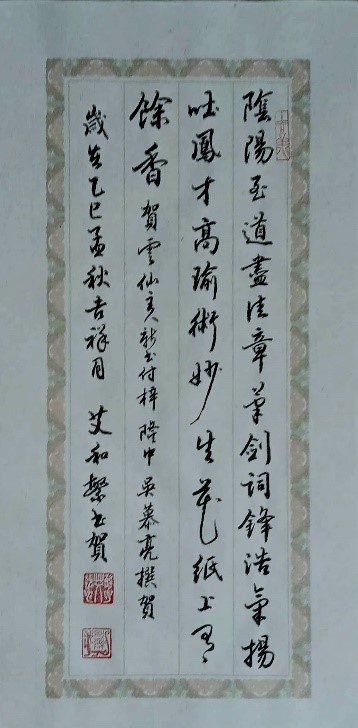 陰陽至道盡佳章筆劍詞鋒浩氣揚
吐鳳才高瑜術妙生花紙上有
餘香 賀雲仙新書付梓 隆中吳慕亮撰賀
歲在乙巳孟秋吉祥月 艾和書賀